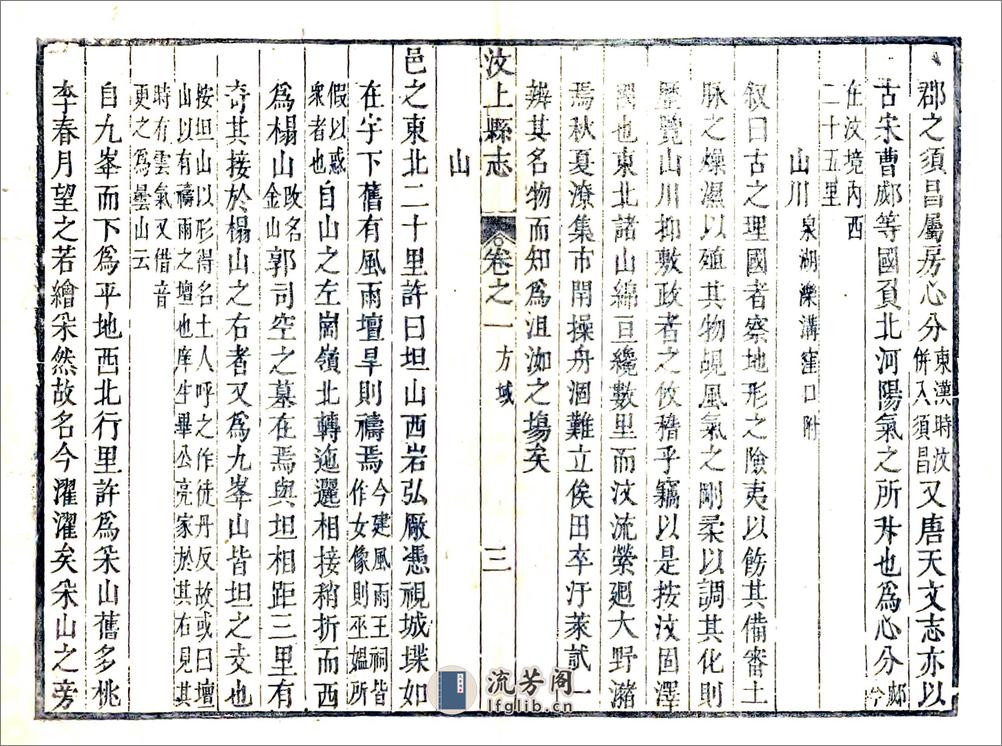 郡之須昌屬房心分東漢時汶併入須昌又唐天文志亦以
古宋曹郕等國負北河陽氣之所升也為心分郕今
在汶境內西二十五里
山川泉湖濼溝窪口附
叙曰古之理國者察地形之險夷以飭其備審土
脉之燥濕以殖其物覘風氣之剛柔以調其化則
歷覽山川抑敷政者之攸稽乎竊以是按汶固澤
國也東北諸山綿亘纔數里而汶流縈廻大野瀦
焉秋夏潦集市閒操舟涸難立俟田卒汙萊貳一
辨其名物而知為沮洳之場矣
汶上縣志
卷之一
方域
三
山
邑之東北二十里許曰坦山西岩弘厰憑視城堞如
在宇下舊有風雨壇旱則禱焉今建風雨王祠皆作女像則巫媼所
假以惑衆者也自山之左崗嶺北轉迤邐相接稍折而西
為楊山改名金山郭司空之墓在焉與坦相距三里有
奇其接於楊山之右者又為九峯山皆坦之支也
按坦山以形得名土人呼之作徒丹反故或曰壇山以有禱雨之壇也庠生畢公亮家於其右見其
時有雲氣又借音更之為曇山云
自九峯而下為平地西北行里許為朵山舊多桃
李春月望之若繪朵然故名今濯濯矣朵山之旁
流芳阁
lfglib.cn